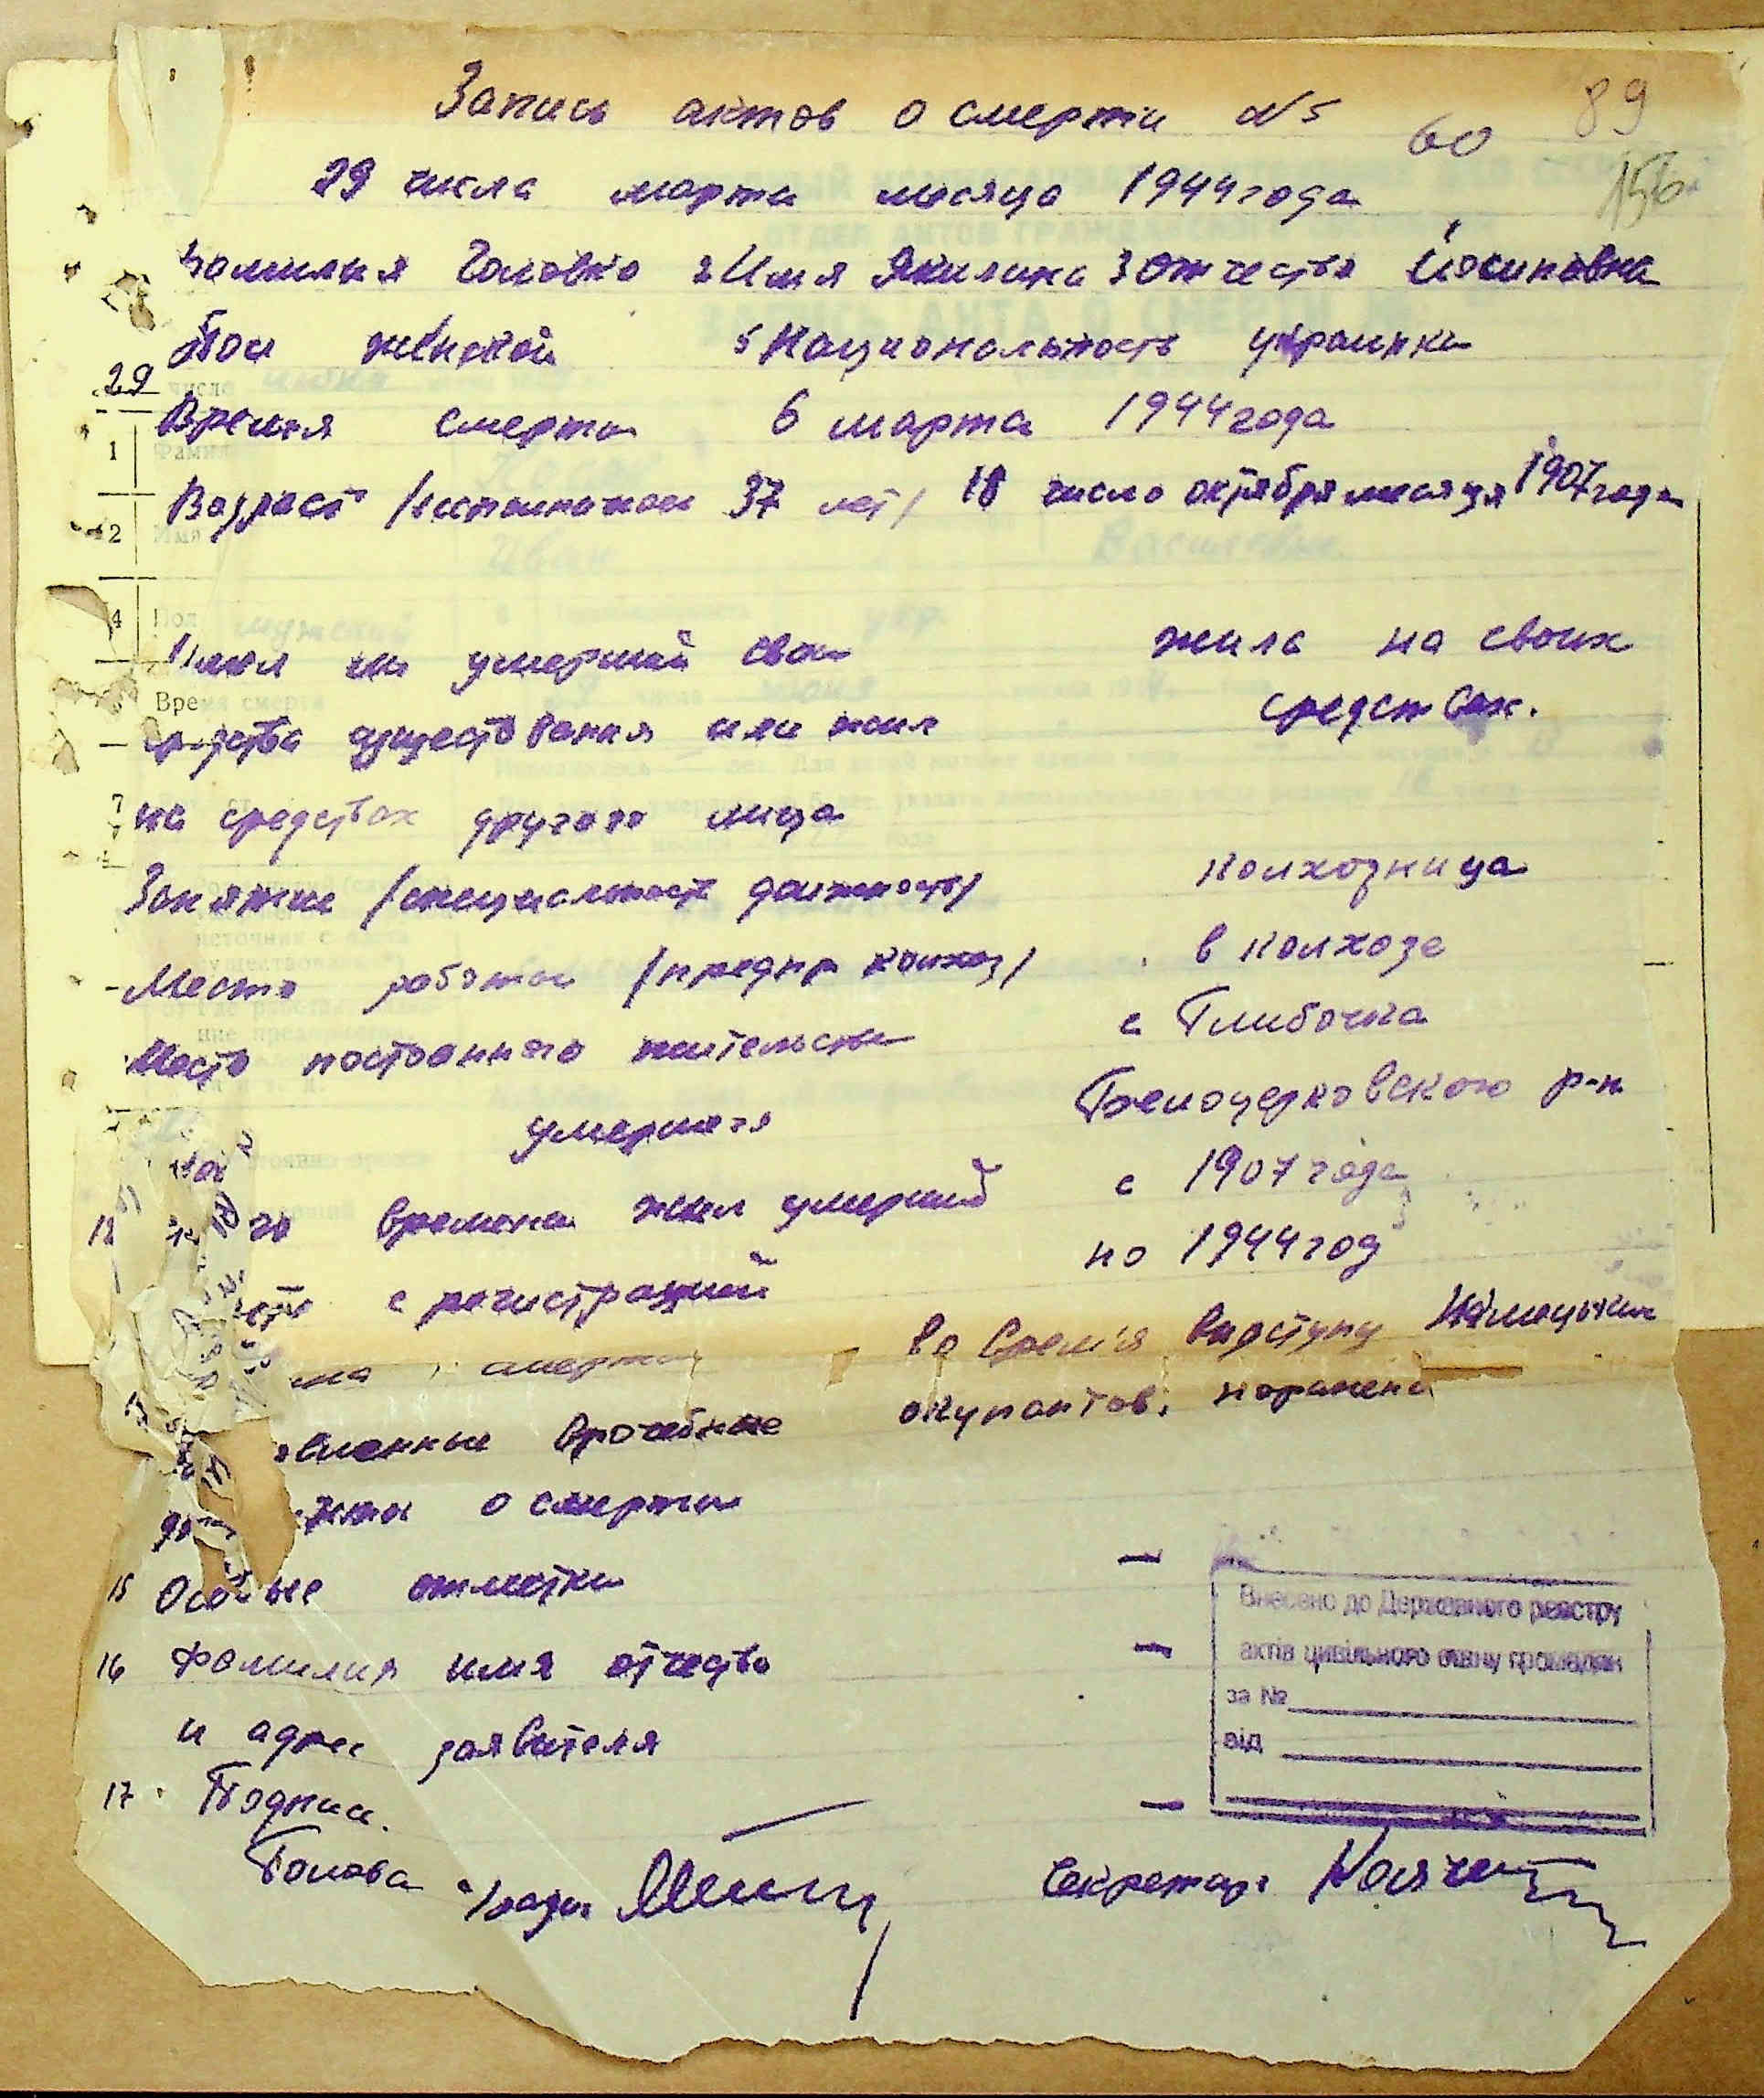 Запись актов о смерти №5
60
89
156
29 числа марта месяца 1944 года
Фамилия Головко 2 Имя Якилина 3 Отчество Йосиповна
Пол женской 5 Национальность украинка
29
Время смерти 6 марта 1944 года
1
Возраст /исполнилось 37 лет/ 18 число октября месяця 1907 года
2
4
Имел ли умерший свои
жила на своих
Вре
средства существования или жил
средствах.
7
на средствах другого лица
Занятие /специальность должность/
колхозница
Место работы /предпр колхоз/
в колхозе
Место постоянного жительства
с Глибочка
умершего
Белоцерковского р-н
12 го времени жил умерший
с 1907 года
по 1944 год
с регистрацией
смерти
во время видступу
окупантов, поранена
врачебные
о смерти
15 Особые отметки
—
16 Фамилия имя отчество
—
и адрес заявителя
17 Подписи.
—
Внесено до Державного реєстру
актів цивільного стану громадян
за №
від
Голова с/ради
Секретарь